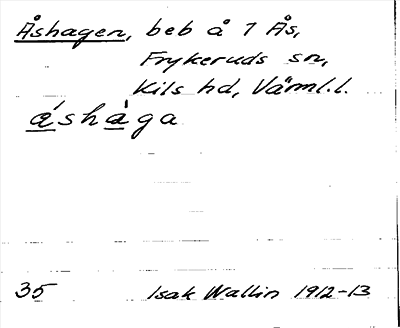 Åshagen, beb å 1 Ås,
Frykeruds sn,
Kils hd, Värml.l.
ǻshàga
35 Isak Wallin 1912-13